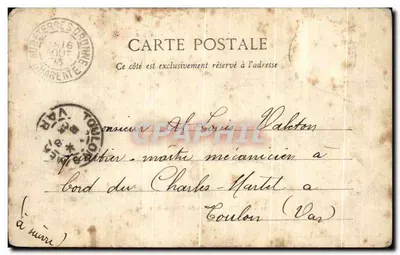 CARTE POSTALE
Ce côté est exclusivement réservé à l'adresse
CHARENTE
TOULON
VAR
Monsieur Louis Valeton
maître mécanicien à
bord du Charles-Martel à
Toulon (Var)
(à suivre)
CPAPHIL